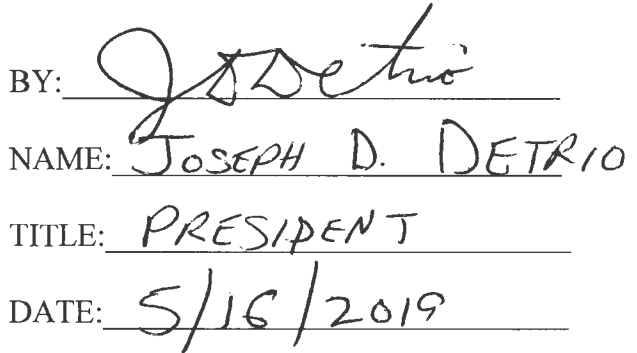 BY: JDDetrio
NAME: JOSEPH D. DETRIO
TITLE: PRESIDENT
DATE: 5/16/2019